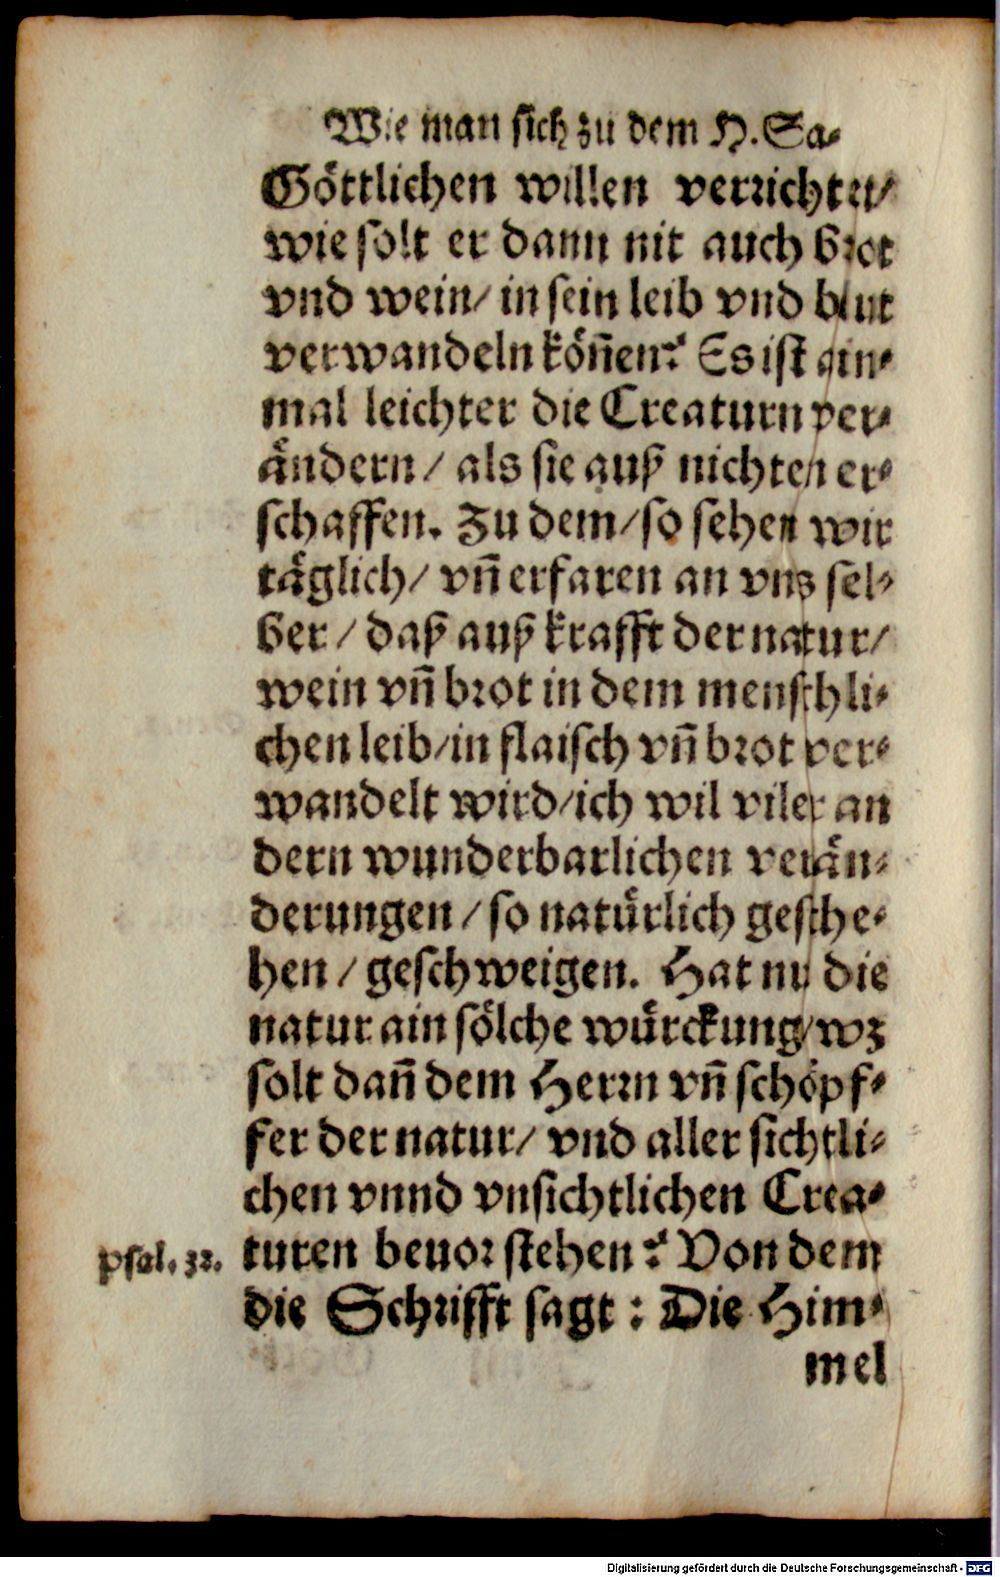 Wie man sich zu dem H. Sa-
Göttlichen willen verrichtet/
wie solt er dann nit auch brot
vnd wein/ in sein leib vnd blut
verwandeln köñen? Es ist ain-
mal leichter die Creaturn ver-
ändern/ als sie auß nichten er-
schaffen. Zu dem/ so sehen wir
täglich/ vñ erfaren an vns sel-
ber/ daß auß krafft der natur/
wein vñ brot in dem menschli-
chen leib/ in flaisch vñ brot ver-
wandelt wird/ ich wil viler an
dern wunderbarlichen verän-
derungen/ so natürlich gesche-
hen/ geschweigen. Hat nu die
natur ain sölche würckung/ wz
solt dañ dem Herrn vñ schöpf-
fer der natur/ vnd aller sichtli-
chen vnnd vnsichtlichen Crea-
psal. 32. turen beuor stehen? Von dem
die Schrifft sagt: Die Him-
mel
Digitalisierung gefördert durch die Deutsche Forschungsgemeinschaft - DFG